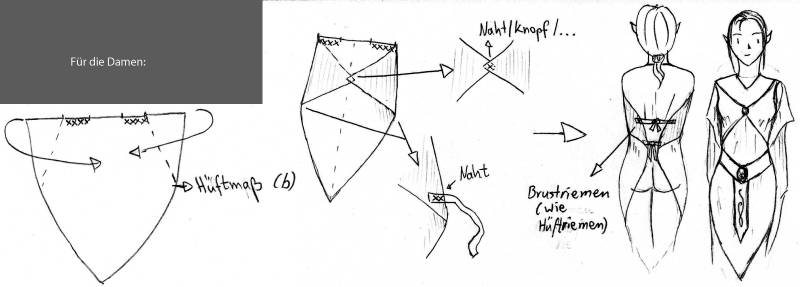 Für die Damen:
Hüftmaß (b)
Naht/Knopf/...
Naht
Brustriemen
(wie
Hüftriemen)